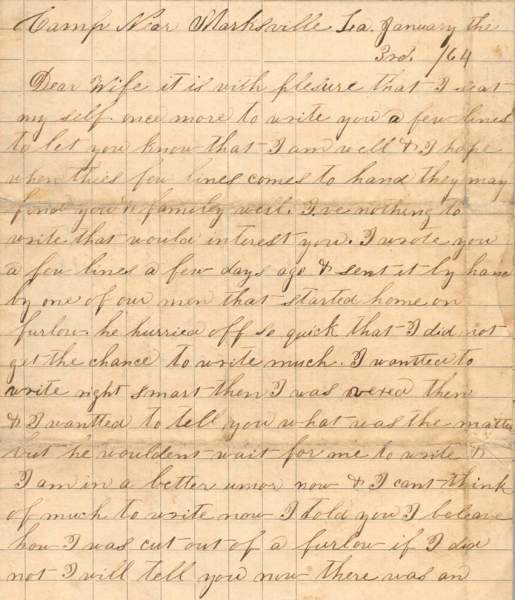 Camp Near Marksville La. January the
3rd. /64
Dear Wife it is with plesure that I seat
my self once more to write you a few lines
to let you know that I am well & I hope
when thees few lines comes to hand they may
find you & familey well. I've nothing to
write that would interest you. I wrote you
a few lines a few days ago & sent it by hand
by one of our men that started home on
furlow he hurried off so quick that I did not
get the chance to write much. I wantted to
write right smart then I was vexed then
& I wantted to tell you what was the matter
but he wouldent wait for me to write &
I am in a better umor now & I cant think
of much to write now I told you I beleave
how I was cut out of a furlow if I did
not I will tell you now there was an